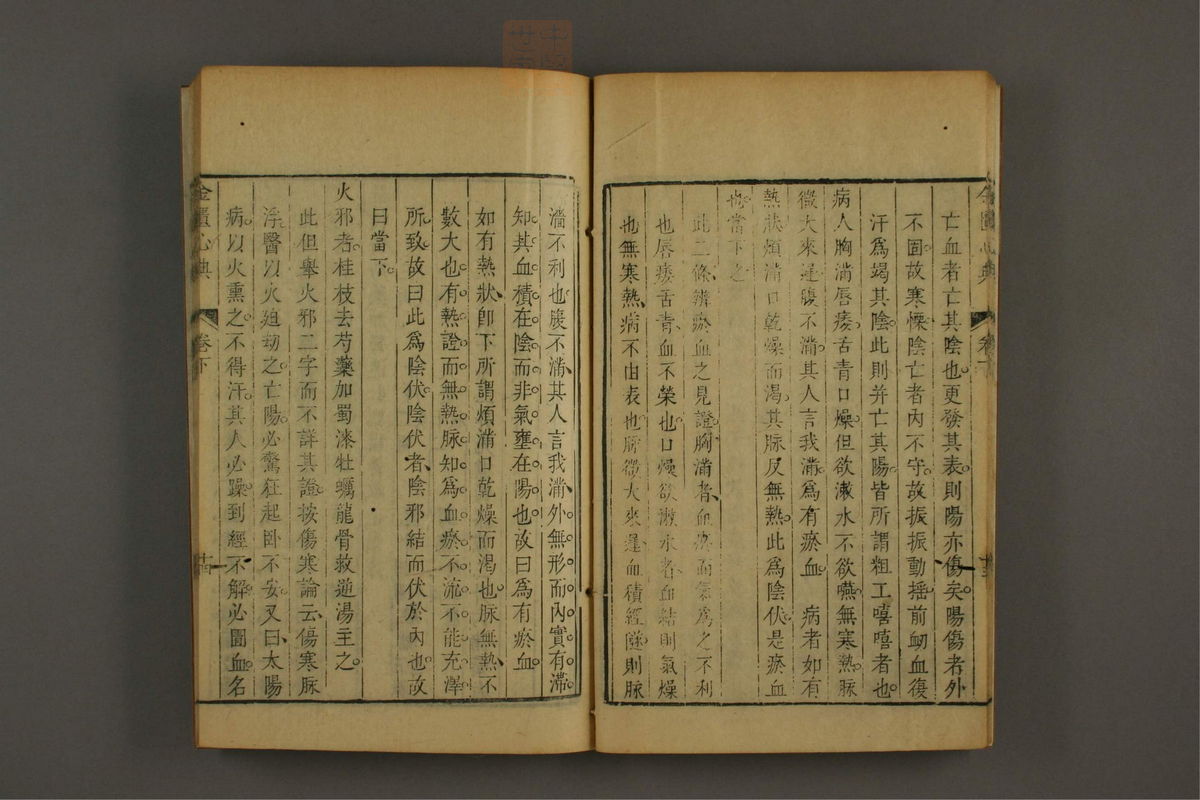 亡血者亡其陰也更發其表則陽亦傷矣陽傷者外
不固故寒慄陰亡者內不守故振振動搖前衄血復
汗爲竭其陰此則并亡其陽皆所謂粗工嘻嘻者也
病人胸滿唇痿舌青口燥但欲漱水不欲嚥無寒熱脈
微大來遲腹不滿其人言我滿爲有瘀血 病者如有
熱狀煩滿口乾燥而渴其脈反無熱此爲陰伏是瘀血
也當下之
此二條辨瘀血之見證胸滿者血瘀而氣爲之不利
也唇痿舌青血不榮也口燥欲漱水者血結則氣燥
也無寒熱病不由表也脈微大來遲血積經隧則脈
濇不利也腹不滿其人言我滿外無形而內實有滯
知其血積在陰而非氣壅在陽也故曰爲有瘀血
如有熱狀卽下所謂煩滿口乾燥而渴也脈無熱不
數大也有熱證而無熱脈知爲血瘀不流不能充澤
所致故曰此爲陰伏陰伏者陰邪結而伏於內也故
曰當下
火邪者桂枝去芍藥加蜀漆牡蠣龍骨救逆湯主之
此但舉火邪二字而不詳其證按傷寒論云傷寒脈
浮醫以火廹劫之亡陽必驚狂起臥不安又曰太陽
病以火熏之不得汗其人必躁到經不解必圊血名
金匱心典 卷下